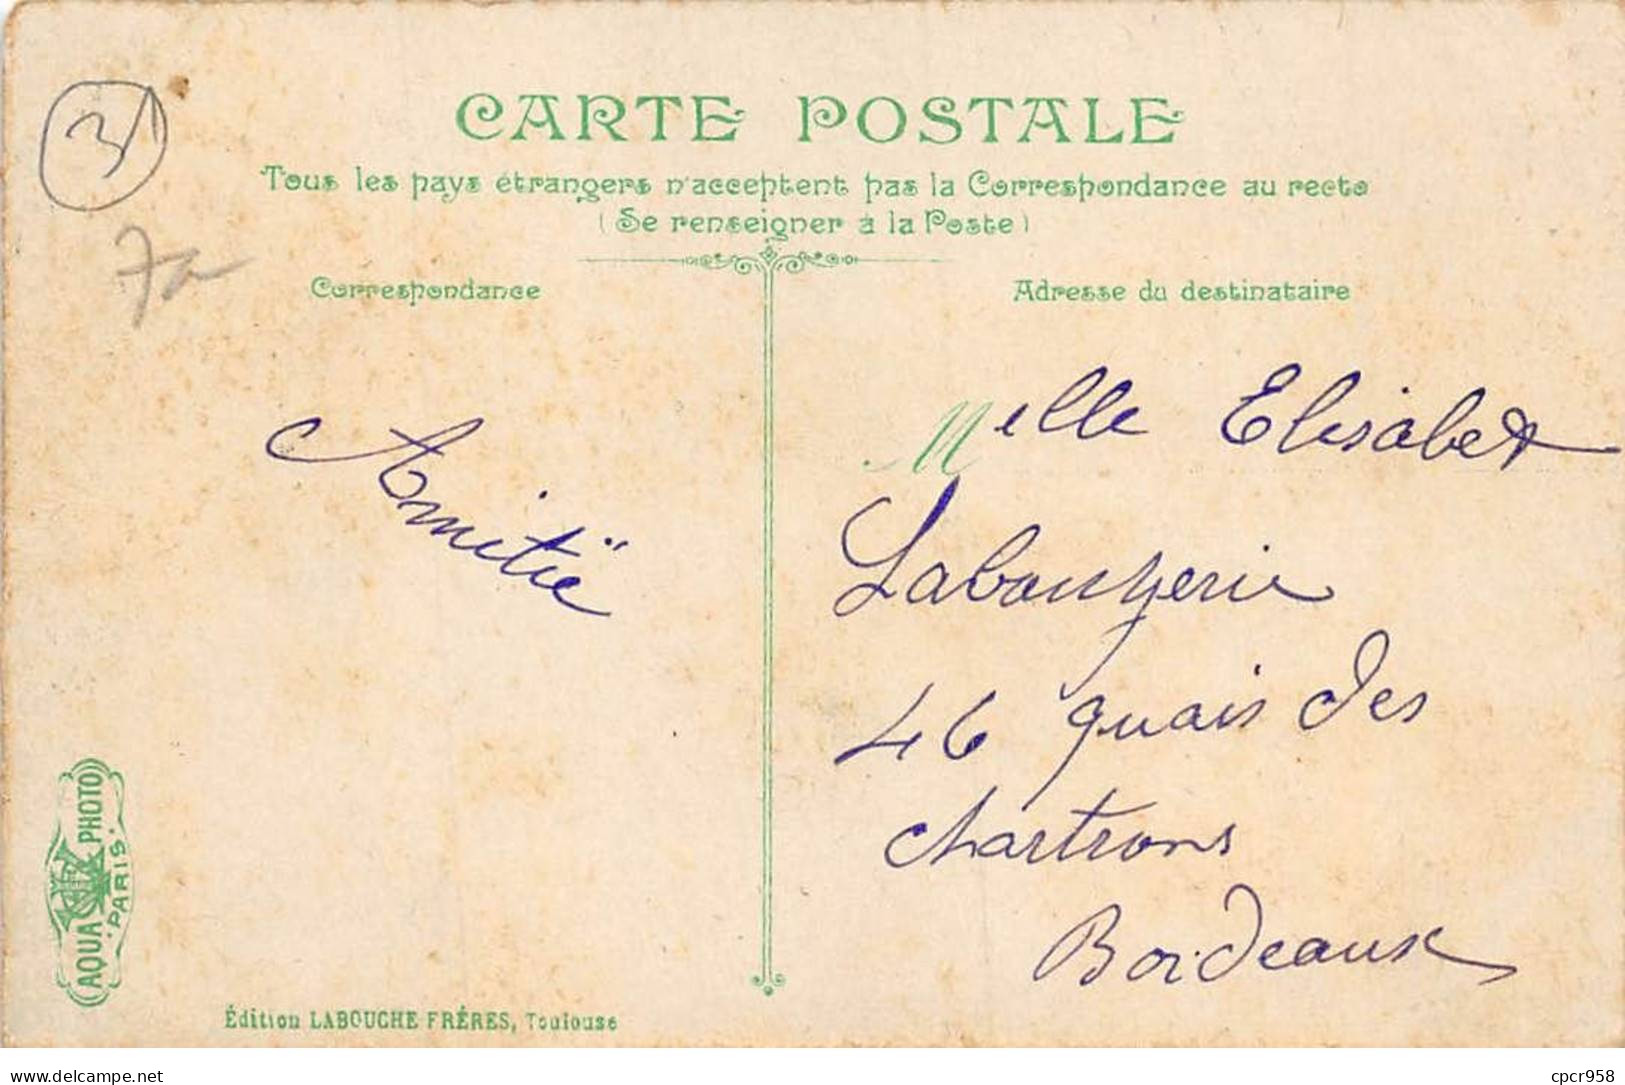 31
CARTE POSTALE
Tous les pays étrangers n'acceptent pas la Correspondance au recto
(Se renseigner à la Poste)
Correspondance
Adresse du destinataire
Amitië
Melle Elisabet
46 quais des
chartrons
Bordeaux
AQUA PHOTO
PARIS
Édition LABOUCHE FRÈRES, Toulouse
www.delcampe.net
cpcr958